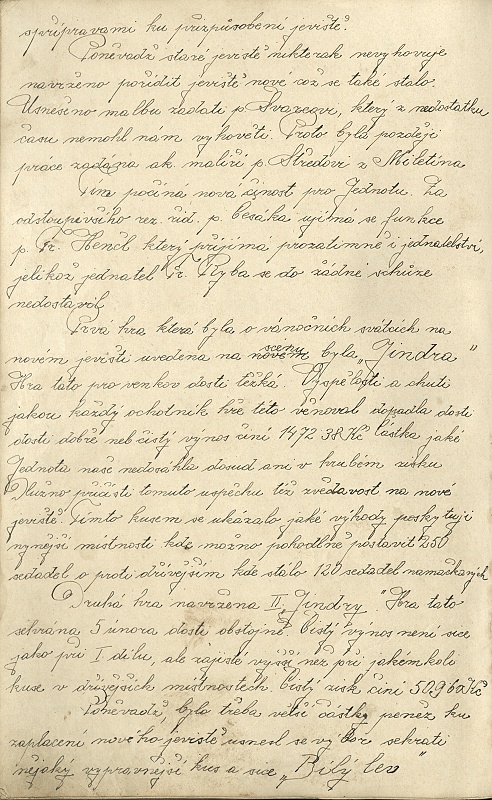 s přípravami ku přizpůsobení jeviště.
Poněvadž staré jeviště nikterak nevyhovuje
navrženo pořídit jeviště nové což se také stalo
Usneseno malbu zadati p. Švarcovi, který z nedostatku
času nemohl nám vyhověti. Proto byla později
práce zadána ak. malíři p Středovi z Miletína
Tím počíná nová činnost pro Jednotu. Za
odstoupevšího rez. říd. p. Česáka ujímá se funkce
p. Fr. Hencl který přijímá prozatimně i jednatelství,
jelikož jednatel Fr. Ryba se do žádné schůze
nedostavil.
Prvá hra která byla o vánočních svátcích na
novém jevišti uvedena na scenu byla „Jindra"
Hra tato pro venkov dosti těžká. Vyspělosti a chuti
jakou každý ochotník hře této věnoval dopadla dosti
dosti dobře neb čistý výnos činí 1472 38 Kč částka jaké
Jednota naše nedosáhla dosud ani v hrubém zisku
Nutno přičísti tomuto uspěchu též zvědavost na nové
jeviště. Tímto kusem se ukázalo jaké výhody poskytují
nynější místnosti kde možno pohodlně postavit 250
sedadel o proti dřívějším kde stálo 120 sedadel namačkaných
Druhá hra navržena II „Jindry" Hra tato
sehrána 5 února dosti obstojně. Čistý výnos není sice
jako při I dílu, ale zajisté vyšší než při jakémkoli
kuse v dřívějších místnostech. Čistý zisk činí 509 60 Kč
Poněvadž, bylo třeba větší částky peněz ku
zaplacení nového jeviště usnesl se výbor sehrati
nějaký vypravnější kus a sice „Bílý lev"